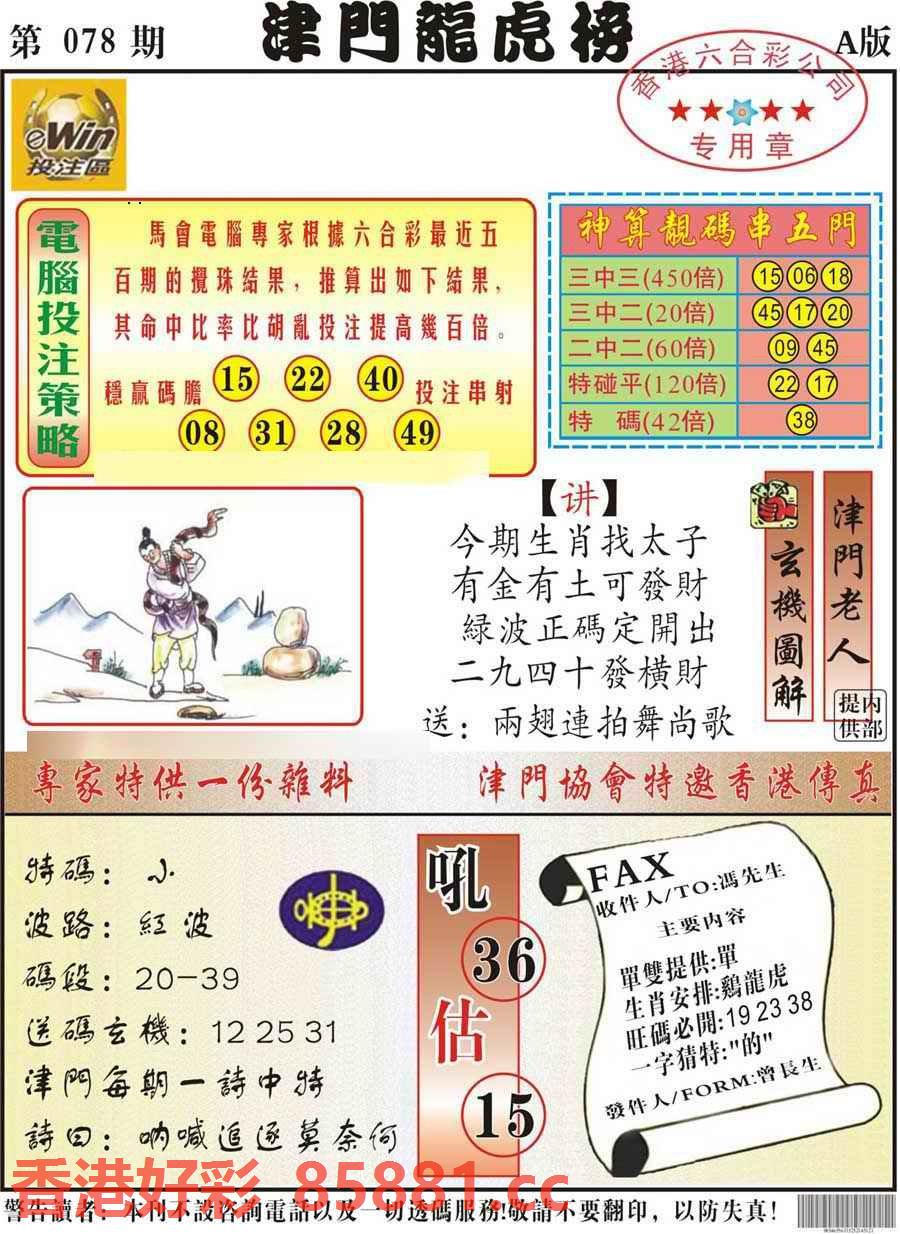 第 078 期
津門龍虎榜
A版
香港六合彩公司
专用章
eWin
投注區
電腦投注策略
馬會電腦專家根據六合彩最近五
百期的攪珠結果，推算出如下結果，
其命中比率比胡亂投注提高幾百倍。
穩贏碼膽 15 22 40 投注串射
08 31 28 49
神算靚碼串五門
三中三(450倍) 15 06 18
三中二(20倍) 45 17 20
二中二(60倍) 09 45
特碰平(120倍) 22 17
特 碼(42倍) 38
【讲】
今期生肖找太子
有金有土可發財
緑波正碼定開出
二九四十發橫財
送：兩翅連拍舞尚歌
玄機圖解
津門老人
内部提供
專家特供一份雜料
津門協會特邀香港傳真
特碼：小
波路：紅波
碼段：20-39
送碼玄機：12 25 31
津門每期一詩中特
詩曰：呐喊追逐莫奈何
吼
36
估
15
FAX
收件人/TO:馮先生
主要内容
單雙提供:單
生肖安排:鷄龍虎
旺碼必開:19 23 38
一字猜特:"的"
發件人/FORM:曾長生
香港好彩 85881.cc
警告讀者：本刊不設咨詢電話以及一切透碼服務!敬請不要翻印，以防失真!